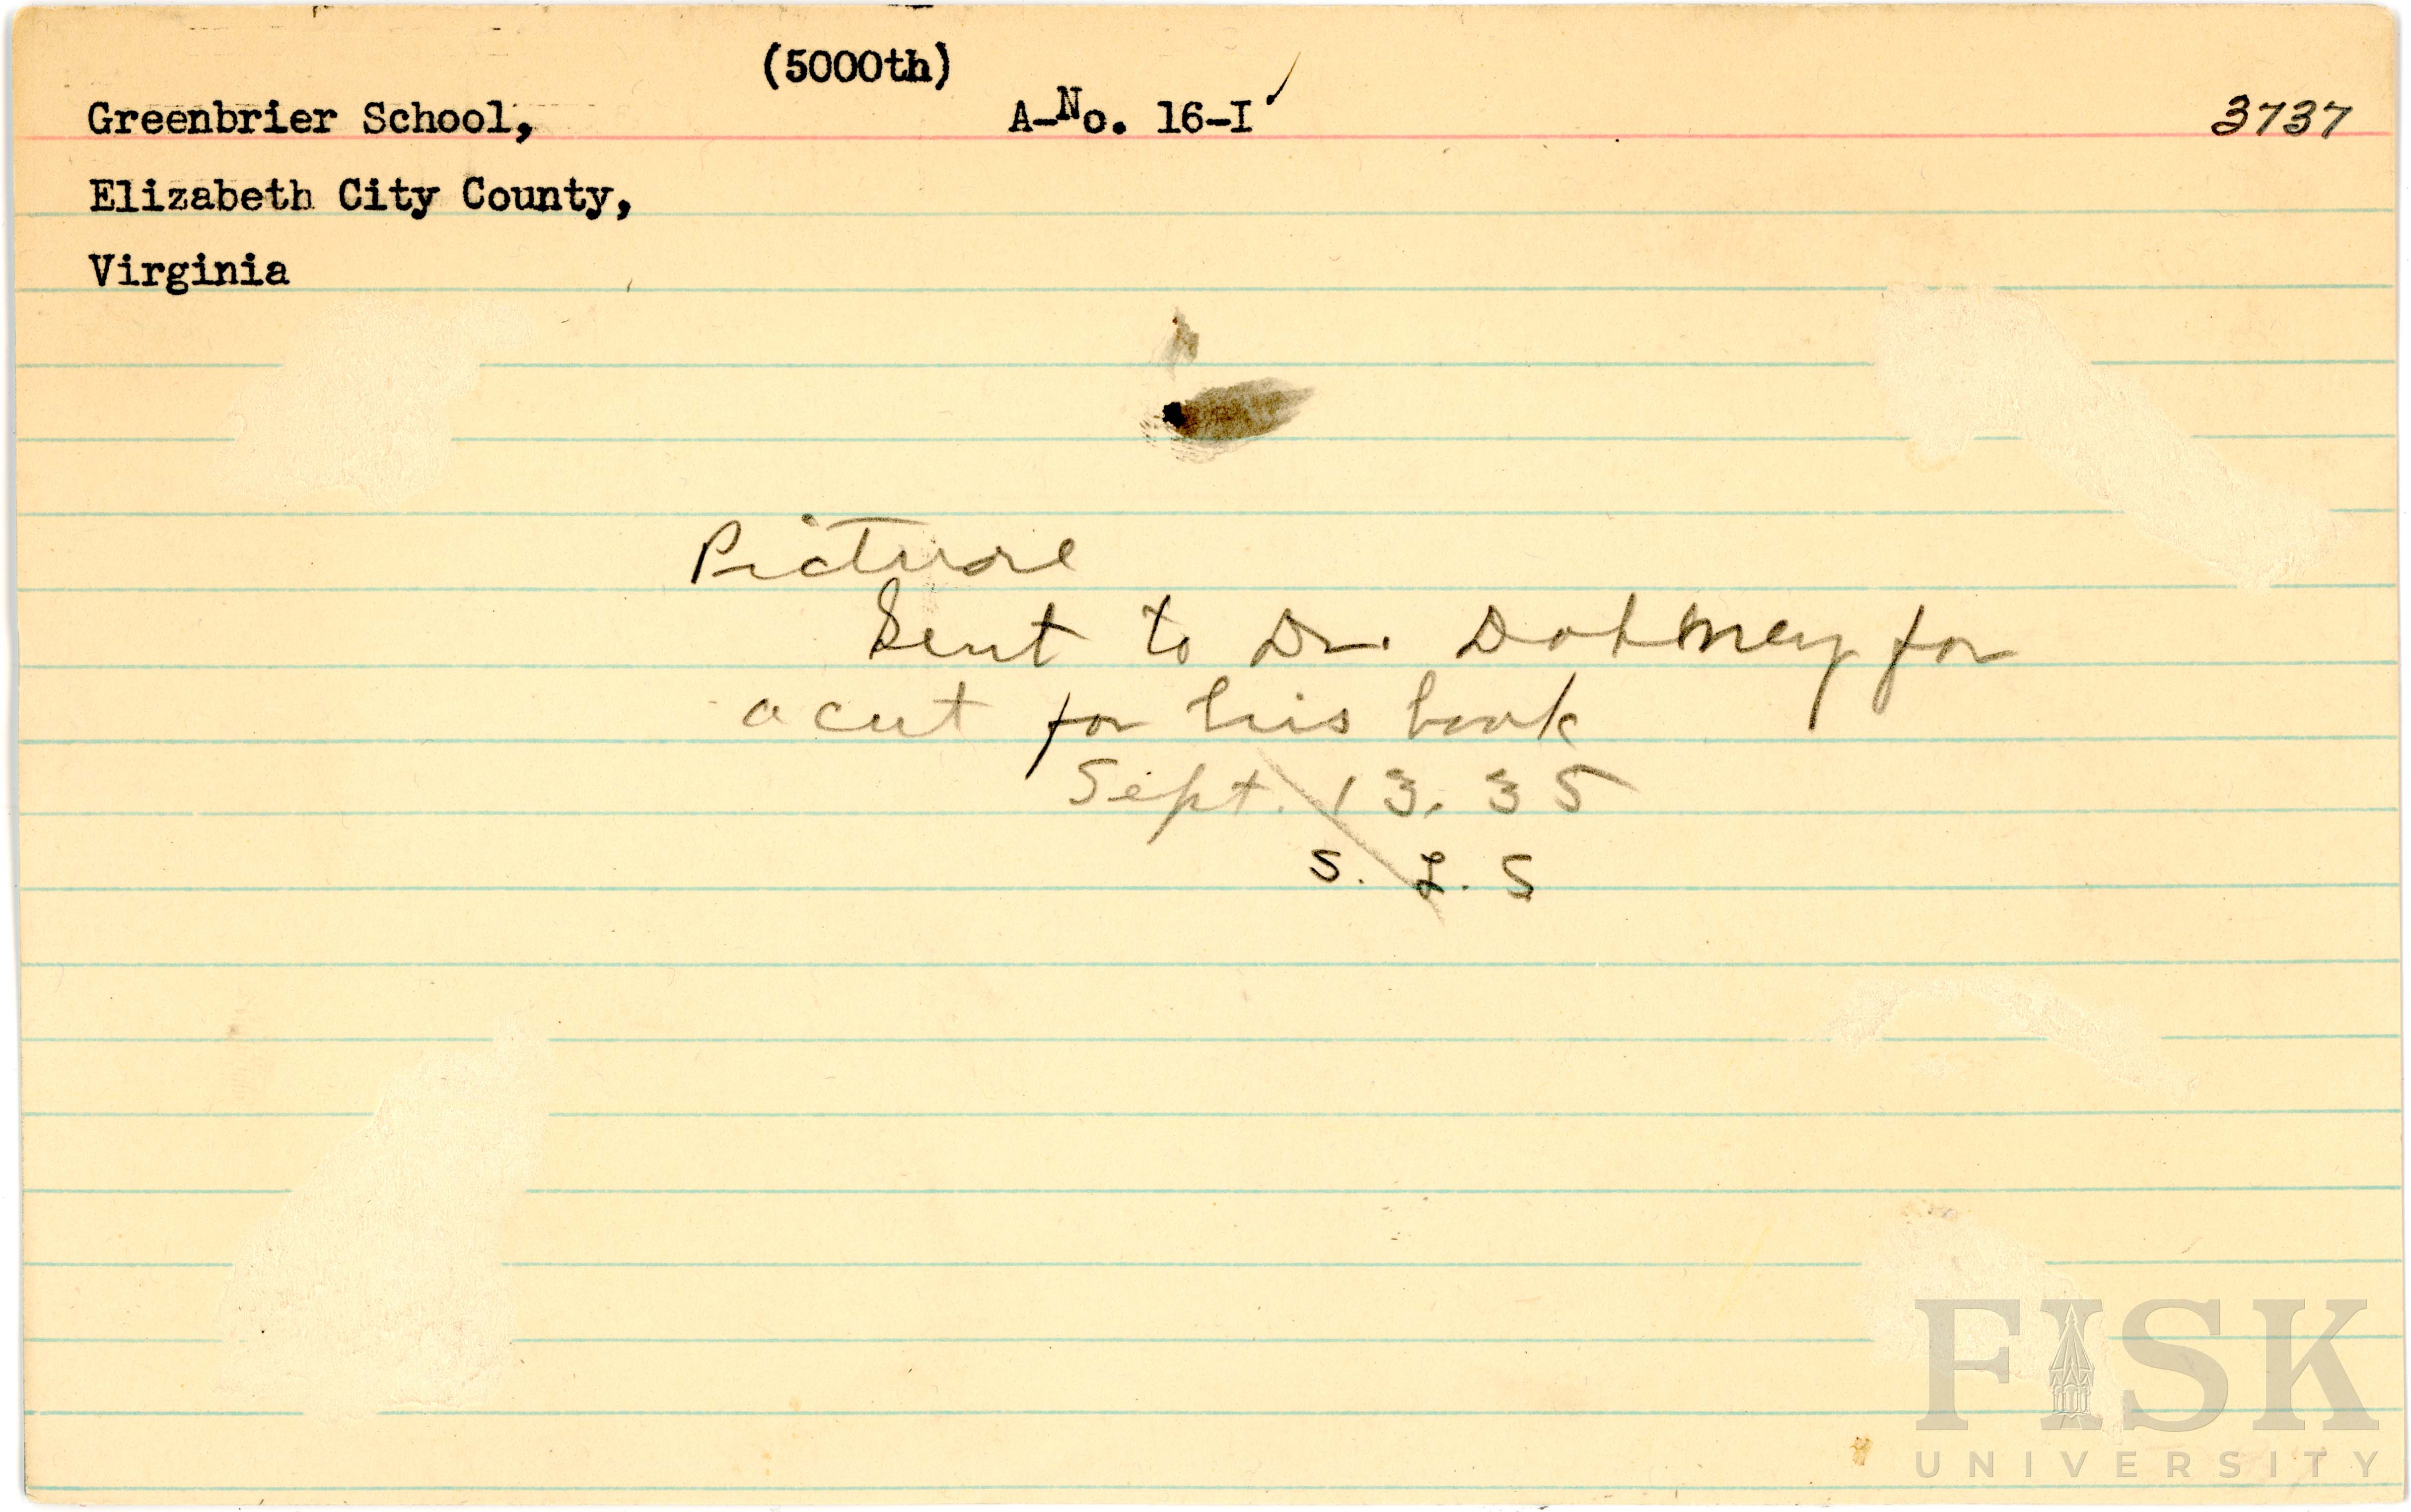 (5000th)
Greenbrier School, A-No. 16-I 3737
Elizabeth City County,
Virginia
Picture
Sent to Dr. for
a cut for his book
Sept. 13. 35
S. L. S
FISK
UNIVERSITY